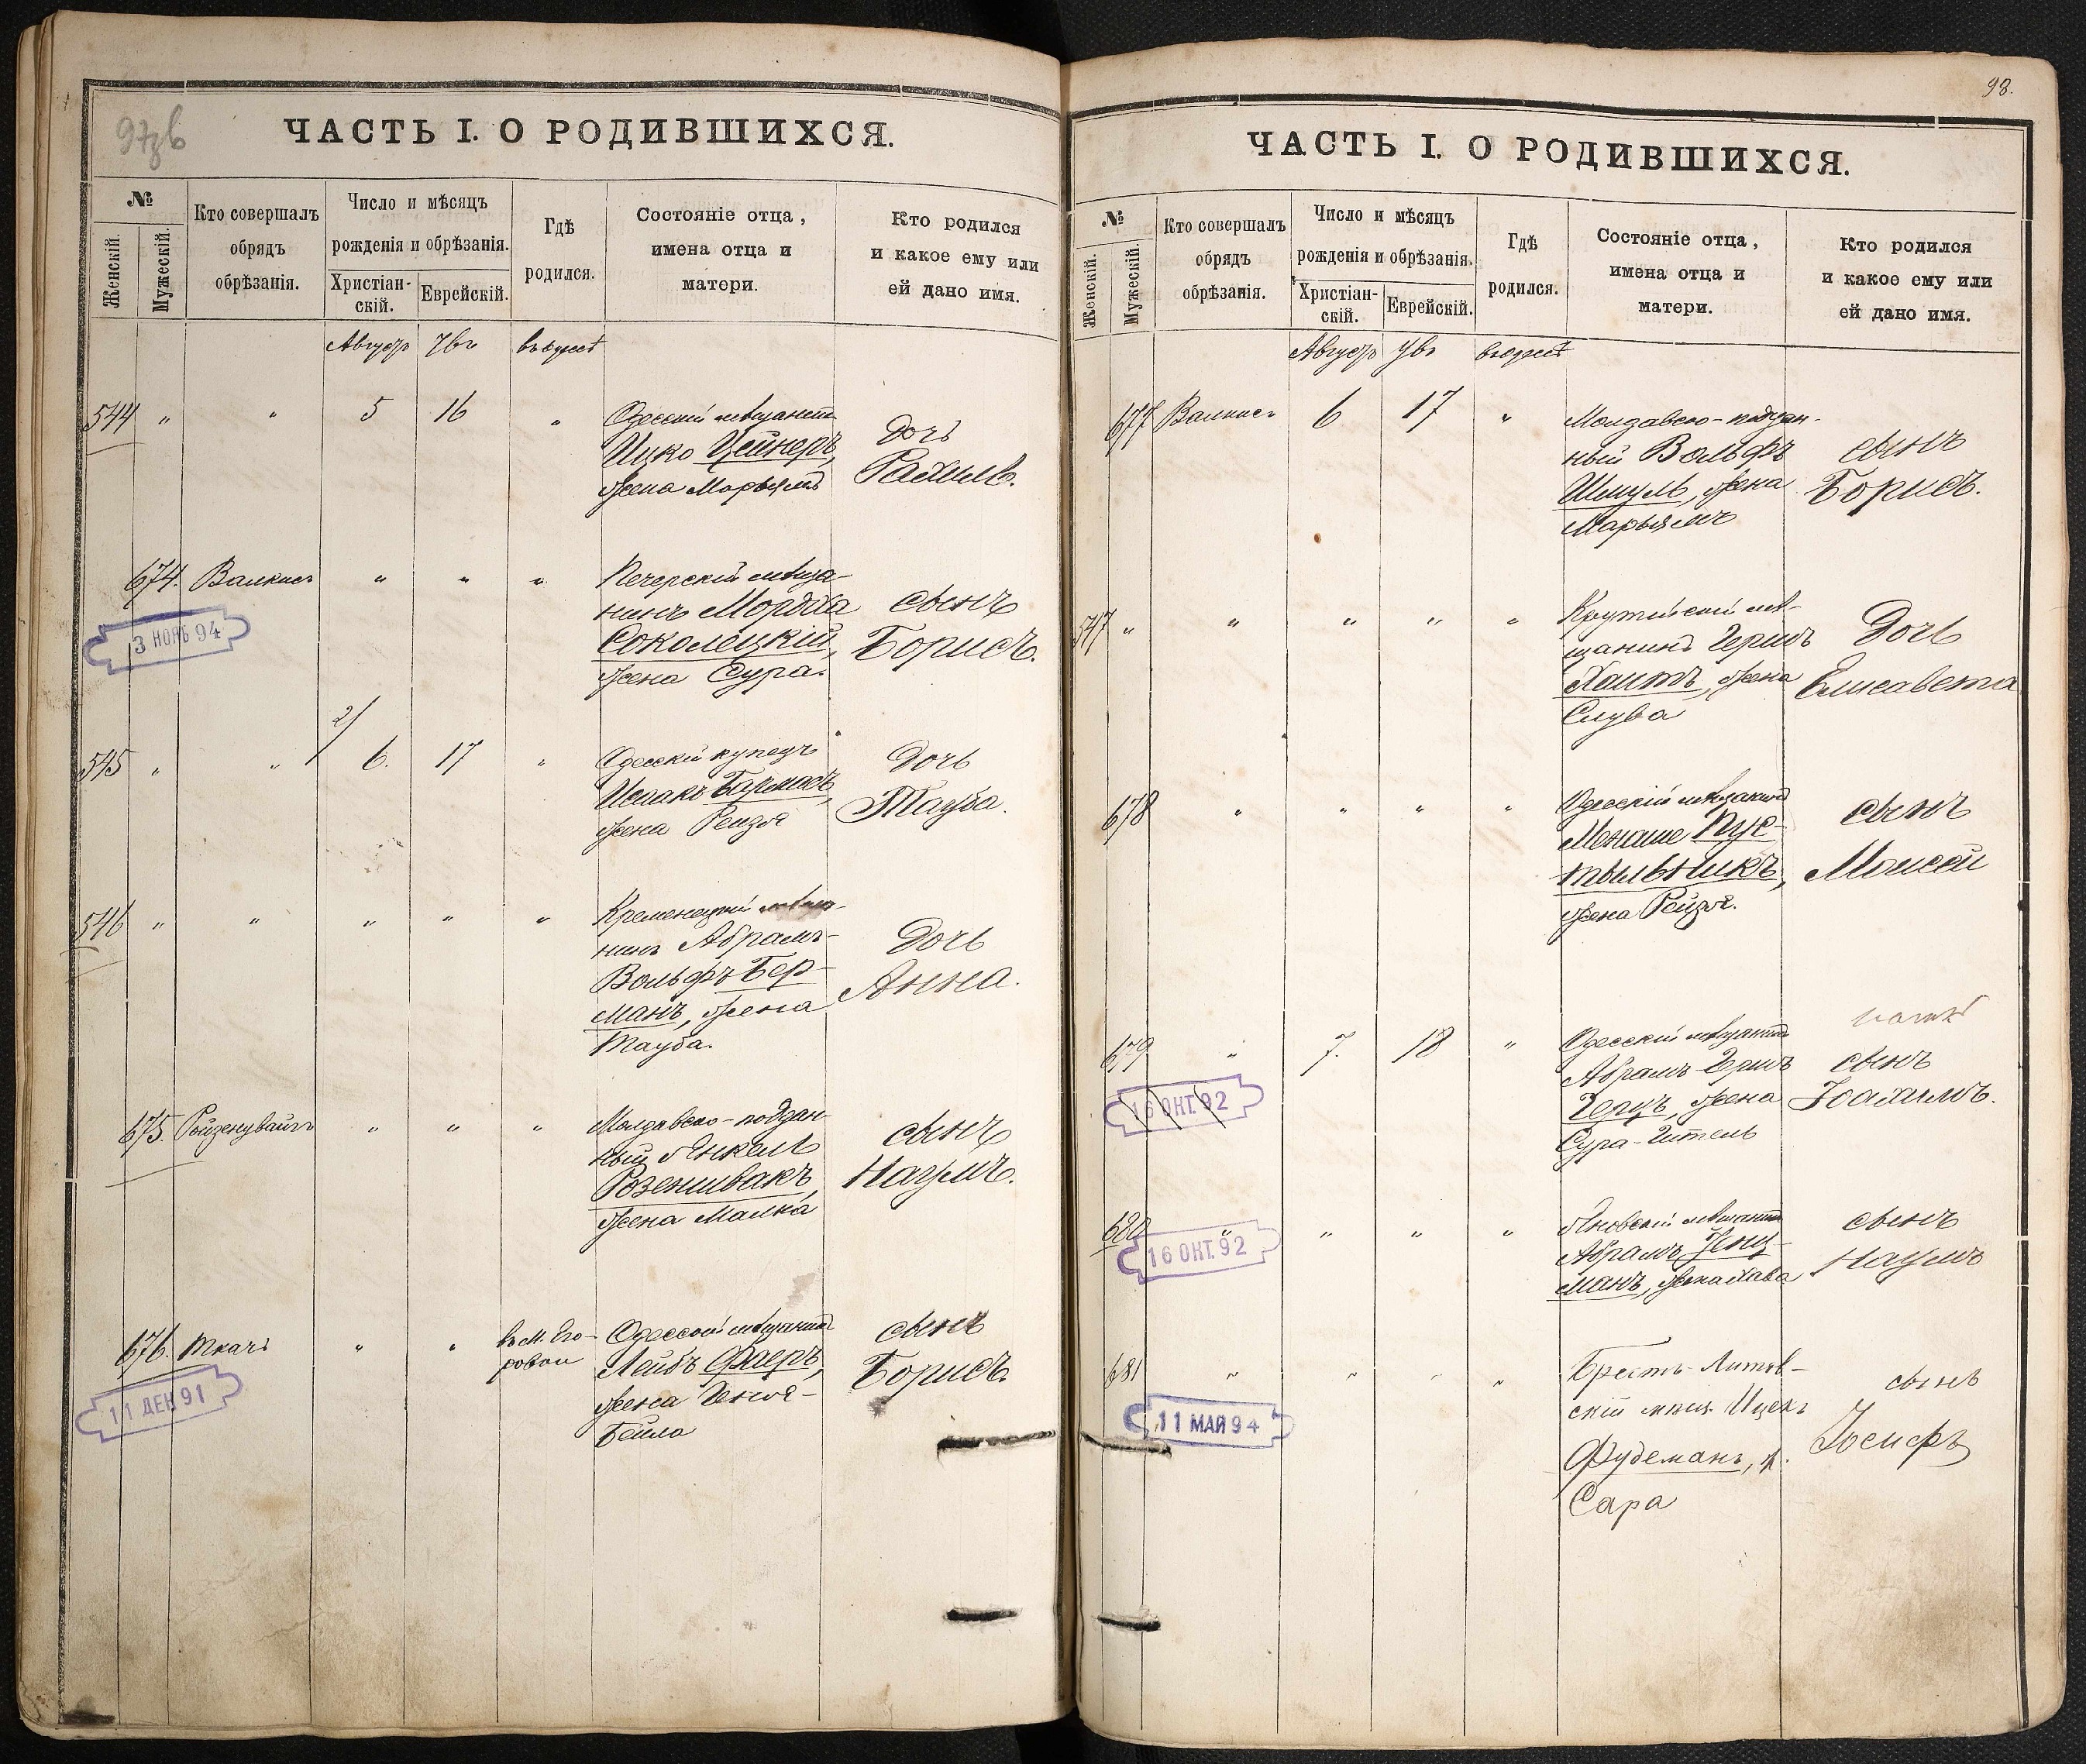 97зв
ЧАСТЬ I. О РОДИВШИХСЯ.
№
Женскій.
Мужескій.
Кто совершалъ
обрядъ
обрѣзанія.
Число и мѣсяцъ
рожденія и обрѣзанія.
Христіан-
скій.
Еврейскій.
Гдѣ
родился.
Состояніе отца,
имена отца и
матери.
Кто родился
и какое ему или
ей дано имя.
Августъ
544 " " 5 16 "
Одесскій мѣщанинъ
Ицко Цейнеръ,
жена Марьямъ
Дочь
Рахиль.
674. Валкисъ " " "
Печерскій мѣща-
нинъ Мордха
Соколецкій,
жена Сура.
сынъ
Борисъ.
3 НОЯБ 94
2/
545 " " 6. 17 "
Одесскій купецъ
Исаакъ
жена Рейзя
Дочь
Тауба.
546 " " " " "
Кременецкій
нинъ Абрамъ-
Вольфъ Бер-
манъ, жена
Тауба.
Дочь
Анна.
675. " " "
Молдавско-поддан-
ный Янкель
Розеншвакъ,
жена Малка
сынъ
Наумъ.
676. Ткачъ " "
въ м. Его-
ровой
Одесскій мѣщанинъ
Лейбъ Фаеръ,
жена Геня-
Бейла
сынъ
Борисъ.
11 ДЕК 91
98.
ЧАСТЬ I. О РОДИВШИХСЯ.
№
Женскій.
Мужескій.
Кто совершалъ
обрядъ
обрѣзанія.
Число и мѣсяцъ
рожденія и обрѣзанія.
Христіан-
скій.
Еврейскій.
Гдѣ
родился.
Состояніе отца,
имена отца и
матери.
Кто родился
и какое ему или
ей дано имя.
Августъ
677 Валкисъ 6 17 "
Молдавско-поддан-
ный Вольфъ
Шмуль, жена
Марьямъ
сынъ
Борисъ.
547 " " " " "
мѣ-
щанинъ Гершъ
Хаитъ, жена
Слува
Дочь
Елисавета
678 " " " "
Одесскій мѣщанинъ
Менаше Пус-
тыльникъ,
жена Рейзя.
сынъ
Моисей
679 " 7. 18 "
Одесскій мѣщанинъ
Абрамъ-Гершъ
Герцъ, жена
Сура-Гитель
сынъ
Іоахимъ.
16 ОКТ. 92
680 " " " "
Яновскій мѣщанинъ
Абрамъ
манъ, жена Хава
сынъ
Наумъ
16 ОКТ. 92
681 " " " "
Брестъ-Литов-
скій мѣщ. Ицекъ
Фудеманъ, ж.
Сара
сынъ
Іосифъ
11 МАЙ 94